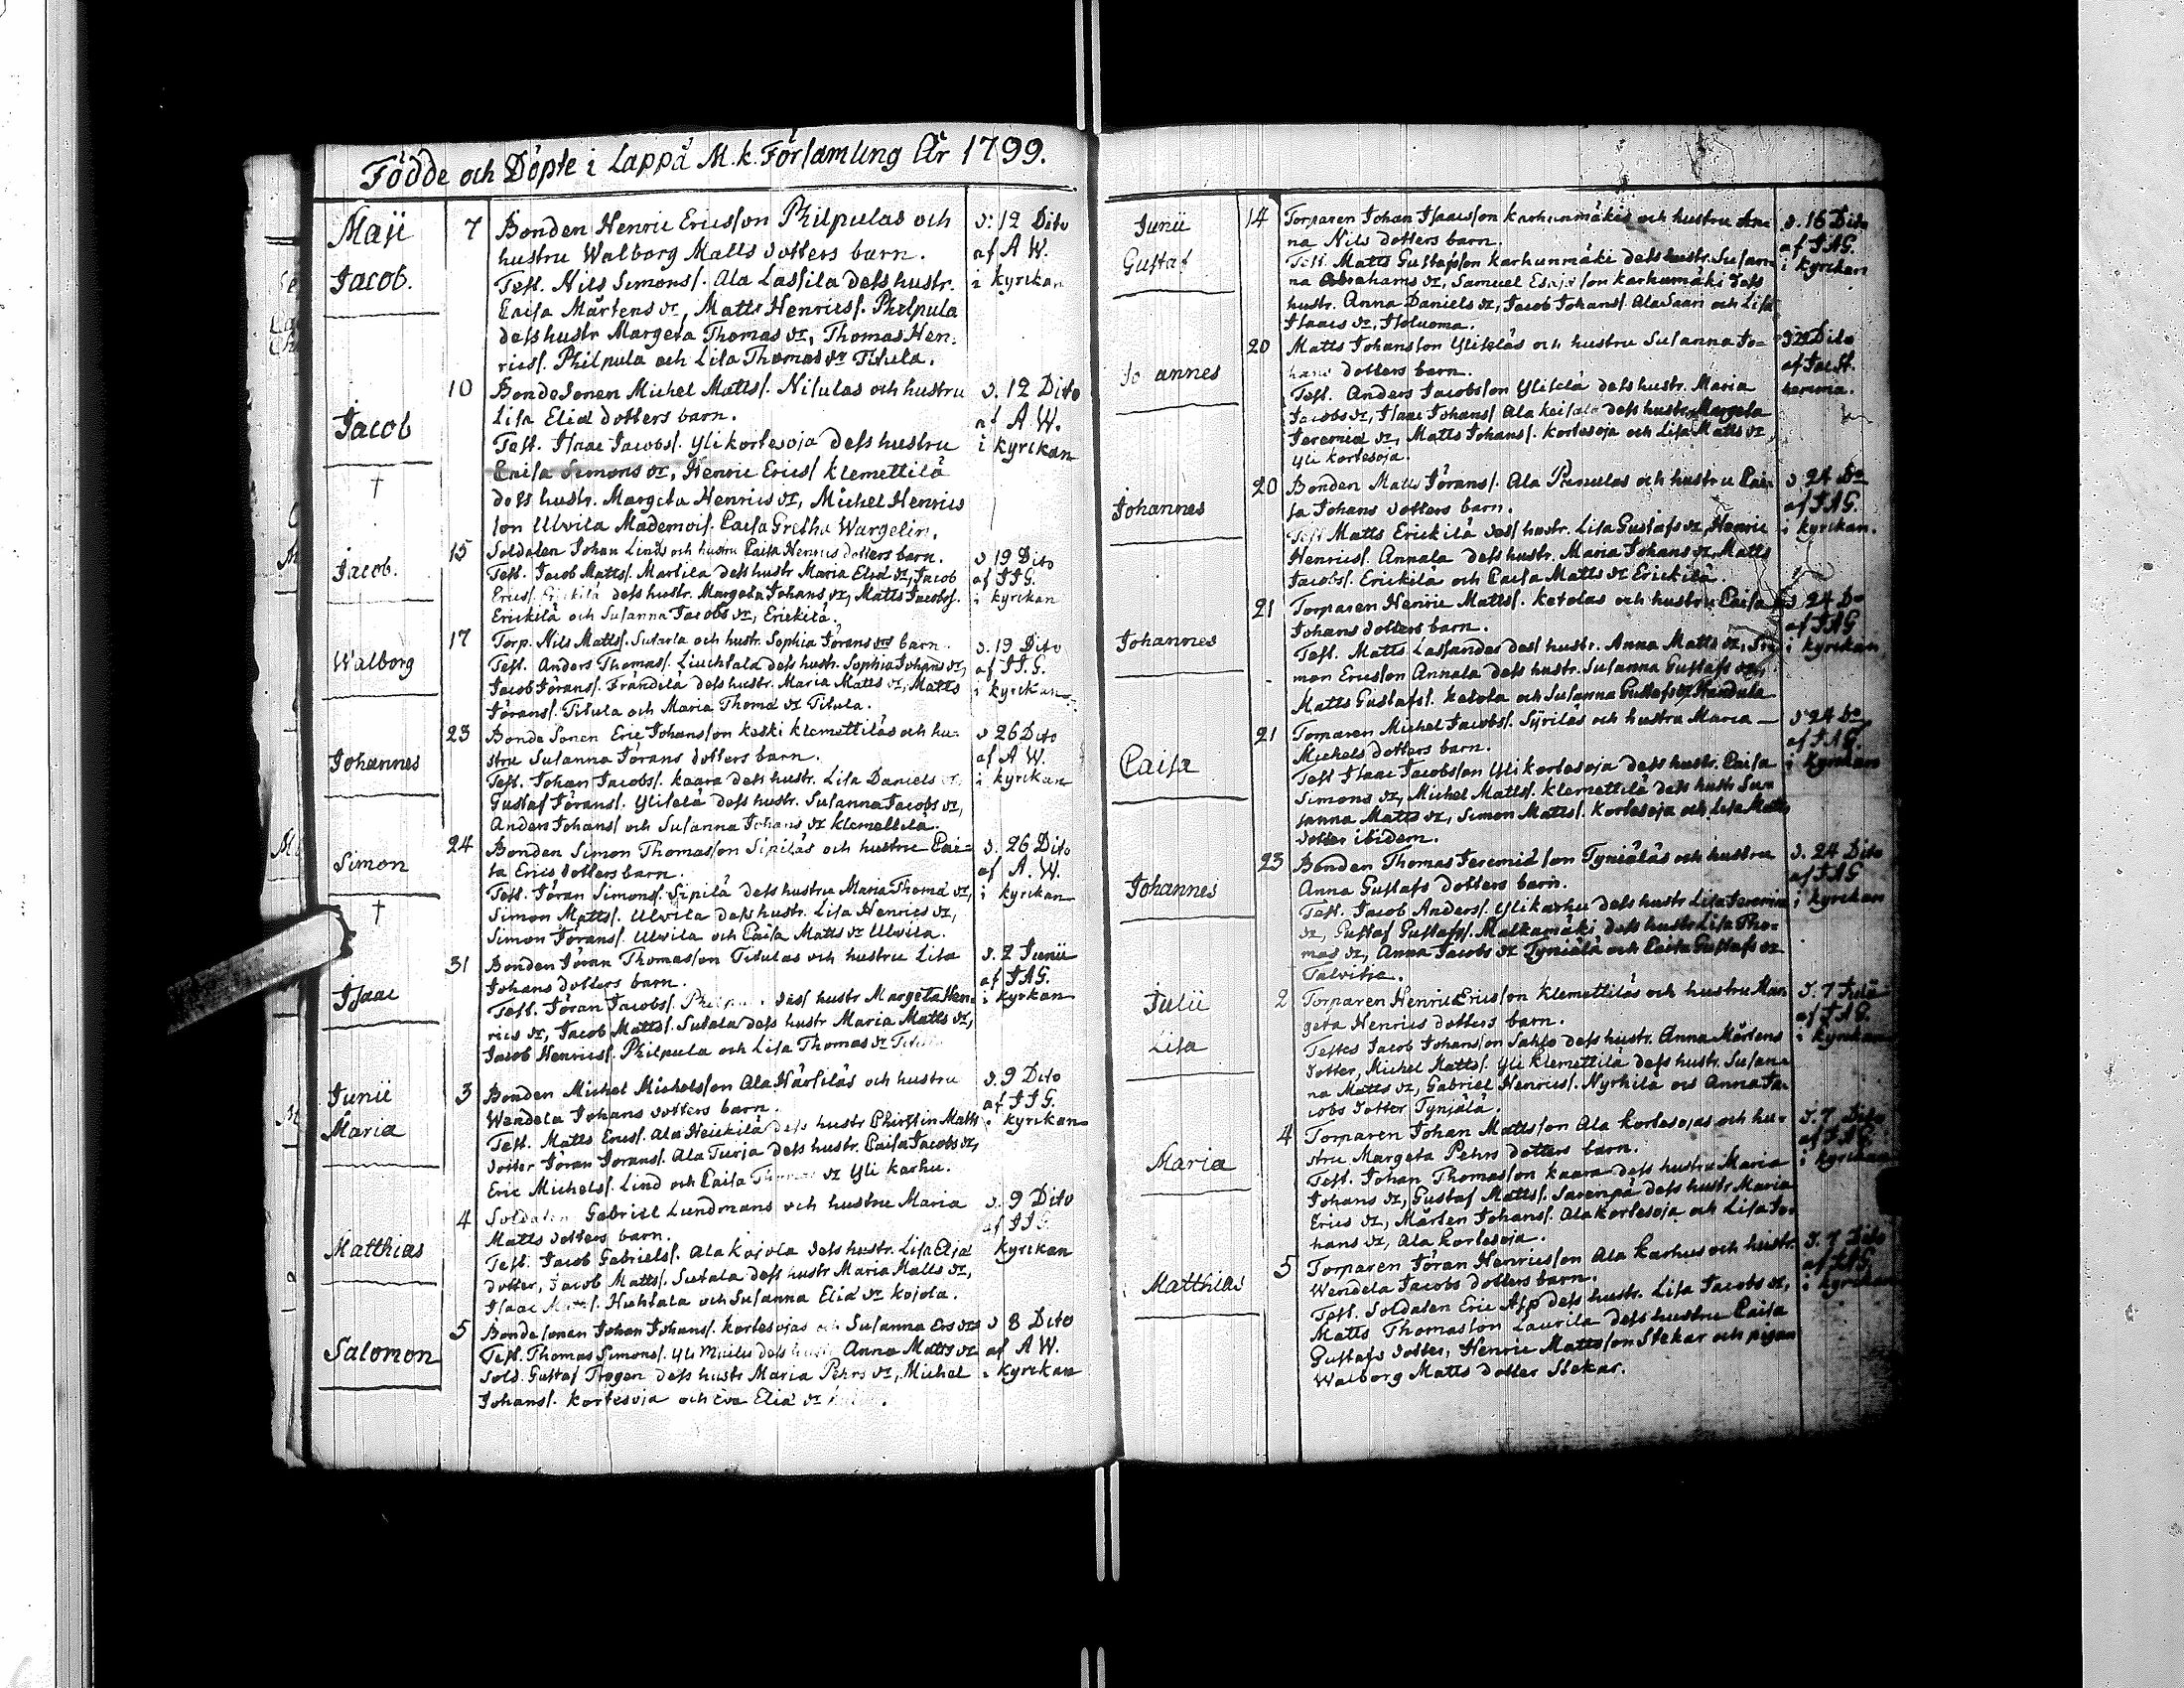 Födde och Döpte i Lappå M.k. Församling År 1799.
Maji 7 Bonden Henric Ericsson Philpulas och d: 12 Dito
hustru Walborg Matts dotters barn. af A W.
Jacob. Test. Nils Simonss. Ala Lassila dess hustr. i kyrckan
Caisa Mårtens dr, Matts Henricss. Philpula
dess hustr Margeta Thomas dr, Thomas Hen-
ricss. Philpula och Lisa Thomas dr Titula.
10 Bondesonen Michel Mattss. Nisulas och hustru d. 12 Dito
Lisa Eliæ dotters barn. af A W.
Jacob Test. Isaac Jacobss. Ylikortesoja dess hustru i kyrckan
Caisa Simons dr, Henric Ericss klemettilä
† dess hustr. Margeta Henrics dr, Michel Henrics
son Ulvila Mademois. Caisa Gretha Wargelin.
15 Soldaten Johan Linds och hustru Caisa Henrics dotters barn. d 19 Dito
Jacob. Test. Jacob Mattss. Martila dess hustr Maria Eliæ dr, Jacob af J J G.
Ericss. dess hustr. Margeta Johans dr, Matts Jacobss. i kyrckan
Erickilä och Susanna Jacobs dr, Erickilä.
17 Torp. Nils Mattss. Sutarla och hustr. Sophia Jörans drs barn. d. 19 Dito
Walborg Test. Anders Thomass. Liuchtala dess hustr. Sophia Johans dr, af J J G.
Jacob Jöranss. Frändilä dess hustr. Maria Matts dr, Matts i kyrckan
Jöranss. Titula och Maria Thomæ dr Titula.
23 Bonde Sonen Eric Johansson koski klemettiläs och hu- d 26 Dito
stru Susanna Jörans dotters barn. af A W.
Johannes Test. Johan Jacobss. kaara dess hustr. Lisa Daniels i kyrckan
Gustaf Jöranss. Yliselä dess hustr. Susanna Jacobs dr,
Anders Johanss och Susanna Johans dr klemettilä.
24 Bonden Simon Thomasson Sipiläs och hustru Cai- d. 26 Dito
Simon sa Erics dotters barn. af A. W.
Test. Jöran Simonss. Sipilä dess hustru Maria Thomæ dr, i kyrckan
† Simon Mattss. Ulvila dess hustr. Lisa Henrics dr,
Simon Jöranss. Ulvila och Caisa Matts dr Ulvila.
31 Bonden Jöran Thomasson Titulas och hustru Lisa d. 2 Junii
Johans dotters barn. af J A G.
Isaac Test. Jöran Jacobss. dess hustr Margeta Hen- i kyrckan
rics dr, Jacob Mattss. Sutala dess hustr Maria Matts dr,
Jacob Henricss. Philpula och Lisa Thomas dr
Junii 3 Bonden Michel Michelsson Ala Närfiläs och hustru d. 9 Dito
Wendela Johans dotters barn. af J J G.
Maria Test. Matts Ericss. Ala Heickilä dess hustr Christin Matts i kyrckan
dotter Jöran Joranss. Ala Turja dess hustr. Caisa Jacobs dr,
Eric Michelss. Lind och Caisa dr Yli karhu.
4 Soldaten Gabriel Lundmans och hustru Maria d. 9 Dito
Matts dotters barn. af J J G.
Matthias Test. Jacob Gabrielss. Ala kojola dess hustr. Lisa Eliæ kyrckan
dotter, Jacob Mattss. Sutala dess hustr Maria Matts dr,
Isaac Huhtala och Susanna Eliæ dr kojola.
5 Bondesonen Johan Johanss. kortesojas och Susanna Ers drs d 8 Dito
Salomon Test. Thomas Simonss. Yli dess Anna Matts dr af A W.
Sold. Gustaf Trogen dess hustr Maria Pehrs dr, Michel i kyrckan
Johanss. kortesoja och Eva Eliæ dr
Junii 14 Torparen Johan Isaacsson karhunmäkis och hustru An- d. 16 Dito
na Nils dotters barn. af J A G.
Gustaf Test. Matts Gustafsson karhunmäki dess hustr. Susan- i kyrckan
na Abrahams dr, Samuel Esaiæ son karhumäki dess
hustr. Anna Daniels dr, Jacob Johanss. Ala Saari och Lisa
Isaacs dr, Isoluoma.
20 Matts Johansson Yliseläs och hustru Susanna Jo- Dito
Johannes hans dotters barn.
Test. Anders Jacobsson Yliselä dess hustr. Maria
Jacobs dr, Isaac Johanss Ala dess hustr. Margeta
Jeremiæ dr, Matts Johanss. kortesoja och Lisa Matts dr
Yli kortesoja.
20 Bonden Matts Jöranss. Ala och hustru Cai- d 24 Do
Johannes sa Johans dotters barn. af J A G.
Test Matts Erickilä dess hustr. Lisa Gustafs dr, Henric i kyrckan.
Henricss. Annala dess hustr. Maria Johans dr, Matts
Jacobss. Erickilä och Caisa Matts dr Erickilä.
21 Torparen Henric Mattss. ketolas och hustru Caisa d 24 Do
Johannes Johans dotters barn. af J A G
Test. Matts Lassandes dess hustr. Anna Matts dr, Si- i kyrckan
mon Ericsson Annala dess hustr. Susanna Gustafs dr,
Matts Gustafss. ketola och Susanna Gustafs dr Handula
21 Torparen Michel Jacobss. Syriläs och hustru Maria — d 24 Do
Michels dotters barn. af J A G.
Caisa Test Isaac Jacobsson Ylikortesoja dess hustr. Caisa i kyrckan
Simons dr, Michel Mattss. klemettilä dess hustr Su-
sanna Matts dr, Simon Mattss. kortesoja och Lisa Matts
dotter ibidem.
23 Bonden Thomas Jeremiæ son Tyniäläs och hustru d. 24 Dito
Johannes Anna Gustafs dotters barn. af J A G
Test. Jacob Anderss. Ylikarhu dess hustr Lisa Jeremiæ i kyrckan
dr, Gustaf Gustafss. Malkamäki dess hustr Lisa Tho-
mas dr, Anna Jacobs dr Tyniälä och Caisa Gustafs dr
Talvitie.
Julii 2 Torparen Henric Ericsson klemettiläs och hustru Mar- d. 7 Julii
geta Henrics dotters barn. af J A G.
Lisa Testes Jacob Johansson Sahlo dess hustr. Anna Mårtens i kyrckan
dotter, Michel Mattss. Yli klemettilä dess hustr. Susan-
na Matts dr, Gabriel Henricss. Nyrhilä och Anna Ja-
cobs dotter Tyniälä.
4 Torparen Johan Mattsson Ala kortesojas och hu- d. 7 Dito
stru Margeta Pehrs dotters barn. af J A G.
Maria Test. Johan Thomasson kaara dess hustru Maria i kyrckan
Johans dr, Gustaf Mattss. Sarenpä dess hustr Maria
Erics dr, Mårten Johanss. Ala kortesoja och Lisa Jo-
hans dr, Ala kortesoja.
5 Torparen Jöran Henricsson Ala karhus och hustr. d. 7 Dito
Matthias Wendela Jacobs dotters barn. af J A G
Test. Soldaten Eric Asp dess hustr. Lisa Jacobs dr, i kyrckan
Matts Thomasson Laurila dess hustru Caisa
Gustafs dotter, Henric Mattsson Stekar och pigan
Walborg Matts dotter Stekar.